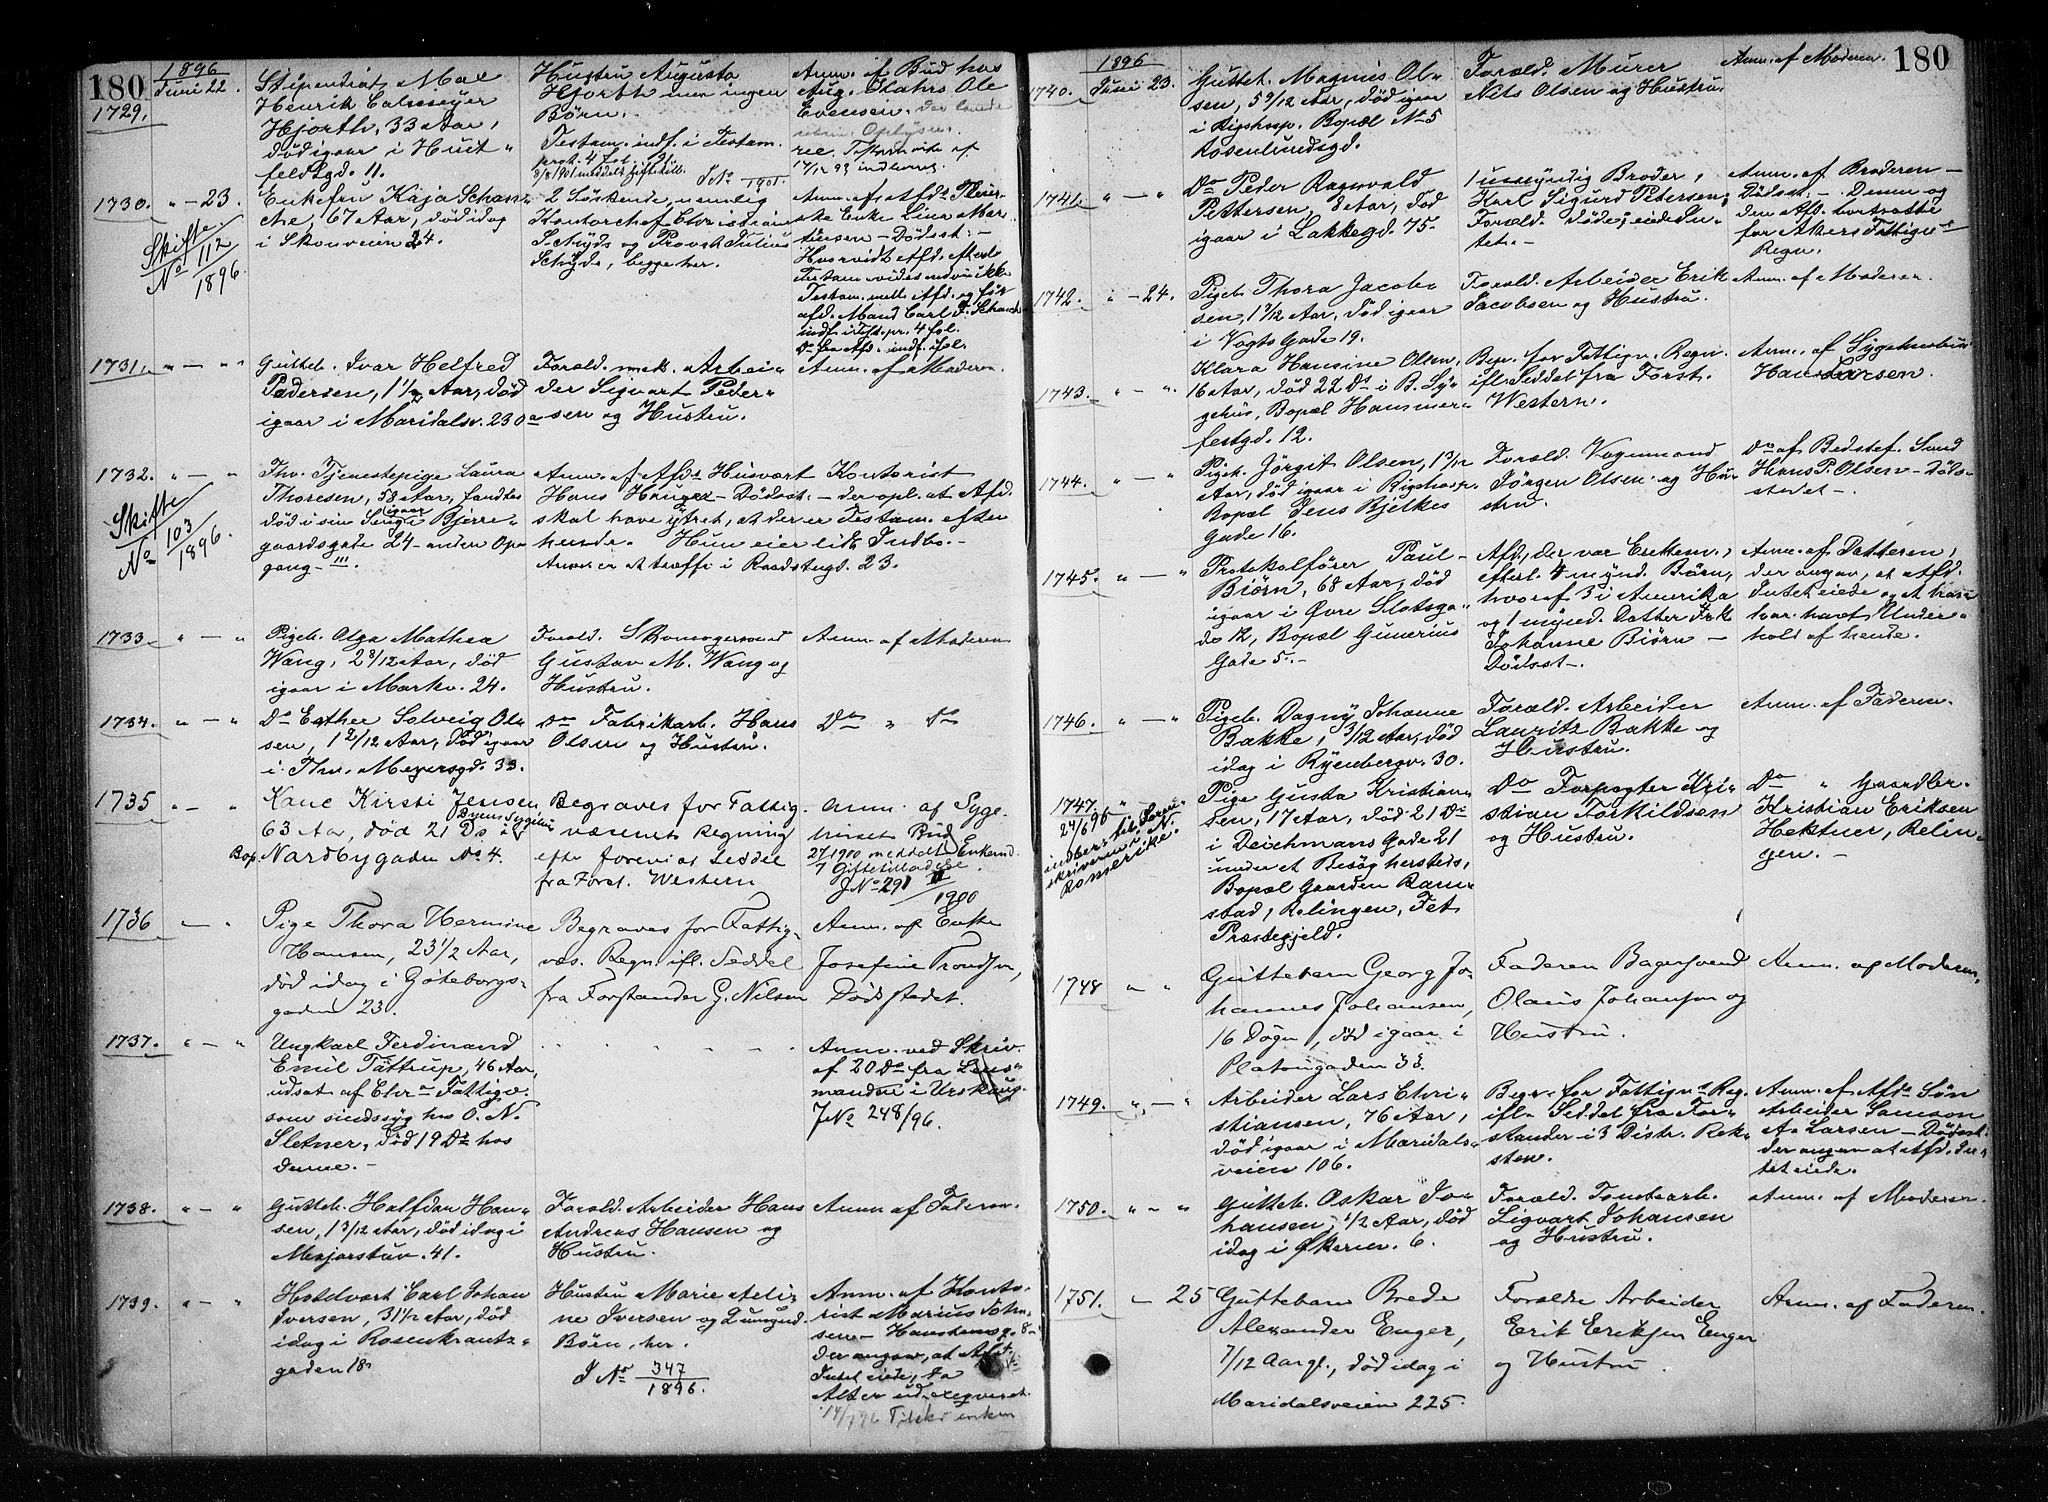 180
1896
Juni 22.
1729.
Stipendiat Max
Henrik
Hjorth, 33 Aar,
død igaar i Huit-
feldtgd. 11.
Hustru Augusta
Hjorth men ingen
Børn.
Testam. indf. i Testam.
prot. 4 fol.
J No 1901.
Anm. af Bud hos
Aug. Ole
Evensen,
1730. " - 23.
Skifte
No 112/1896
Enkefru Kaja Schan-
che, 67 Aar, død idag
i Skovveien 24.
2 Søskende, nemlig
Kontorchef Christian
og Provst Julius
begge her.
Anm. af Afds
Enke Lina Mar-
tinsen - Dødsst. -
Hvorvidt Afd. efterl.
Testam. vides endnu ikke
Testam. mell. Afd. og før
afd. Mand Carl F. Schanche
indf. i Test. pr. 4 fol.
Do fra Afd. indf. fol.
1731. " - "
Gutteb. Ivar Helfred
Pedersen, 1 1/2 Aar, død
igaar i Maridalsv. 230 a
Foræld. Arbei-
der Sigvart Peder-
sen og Hustru.
Anm. af Moderen
1732. " - "
Skifte
No 103/1896.
Fhv. Tjenestepige Laura
Thoresen, 58 Aar, fandtes
død i sin Seng igaar i Bjerre-
gaardsgade 24 - anden Op-
gang - III.
Anm. af Afds Husvært Kontorist
Hans Hauger - Dødsst. - der opl. at Afd.
skal have ytret, at der er Testam. efter
hende. Hun eier lidt Indbo. -
Anm. er at træffe i Raadstugd. 23.
1733. " - "
Pigeb. Olga Mathea
Wang, 2 8/12 Aar, død
igaar i Markv. 24.
Foræld. Skomagersvend
Gustav M. Wang og
Hustru.
Anm. af Moderen
1734. " - "
Do Esther Solveig Ol-
sen, 1 2/12 Aar, død igaar
i Thv. Meyersgd. 33.
Do Fabrikarb. Hans
Olsen og Hustru.
Do " Do
1735 " - "
Kone Kirsti Jensen
63 Aar, død 21 Ds i Byens Sygehus
Bop. Nordbygaden No 4.
Begraves for Fattig-
væsenets Regning
efter forevist Seddel
fra Forst. Western
Anm. af Syge-
huset Bud
27/1900 meddelt Enkem.
Giftetilladelse
J No 291 II/1900
1736 - "
Pige Thora Hermine
Hansen, 23 1/2 Aar,
død idag i Göteborgs-
gaden 23.
Begraves for Fattig-
væs. Regn. ifl. Seddel
fra Forstander G. Nilsen
Anm. af Enke
Josefine Trondsen,
Dødsstedet.
1737. " - "
Ungkarl Ferdinand
Emil Tättrup, 46 Aar,
udsat af Chra Fattigv.
som sindssyg hos O. N.
Sletner, død 19 Ds hos
denne. -
Anm. ved Skriv.
af 20 Ds fra Lens-
manden i Urskaug.
J No 248/96.
1738. " - "
Gutteb. Halfdan Han-
sen, 1 3/12 Aar, død idag i
Majorstuv. 41.
Foræld. Arbeider Hans
Andreas Hansen og
Hustru.
Anm. af Faderen.
1739. " - "
Hotelvært Carl Johan
Iversen, 31 1/2 Aar, død
idag i Rosenkrantz-
gaden 18.
Hustru Marie Aeli-
ne Iversen og 2 umynd.
Børn, her.
J No 347/1896.
Anm. af Konto-
rist Marius John-
sen -
der angav, at Afd.
Intet eiede, da
Alt er ud
14/7 96
180
1896
1740. Juni 23.
Gutteb. Magnus Ol-
sen, 5 9/12 Aar, død igaar
i Rigshosp. Bopæl No 5
Rosenlundsgd.
Foræld. Murer
Nils Olsen og Hustru.
Anm. af Moderen.
1741. " - "
Do Peder Ragnvald
Pettersen, 8 Aar, død
igaar i Lakkegd. 75.
1 umyndig Broder,
Karl Sigurd Petersen,
Foræld. døde, eiede In-
tet. -
Anm. af Broderen -
Dødsst. - Denne og
den Afd. bortsatte
for Akers Fattigv.
Regn.
1742. " - 24.
Pigeb. Thora Jacob-
sen, 1 1/12 Aar, død igaar
i Vogts Gade 19.
Foræld. Arbeider Erik
Jacobsen og Hustru.
Anm. af Moderen
1743. " - "
Klara Hansine Olsen,
16 Aar, død 22 Ds i B. Sy-
gehus, Bopæl Hammer-
festgd. 12.
Begr. for Fattigv. Regn.
ifl. Seddel fra Forst.
Western.
Anm. af Sygehusbud
Hans Larsen.
1744. " - "
Pigeb. Jörgit Olsen, 1 3/12
Aar, død igaar i Rigshosp.
Bopæl Jens Bjelkes
Gade 16.
Foræld. Vognmand
Jörgen Olsen og Hu-
stru.
Do af Bedstef. Smed
Hans P. Olsen - Døds-
stedet -.
1745. " - "
Protokolfører Paul
Biörn, 68 Aar, død
igaar i Øvre Slotsga-
de 12, Bopæl Gunerius
Gade 5. -
Afd., der var Enkem.,
efterl. 4 mynd. Børn,
hvoraf 3 i Amerika
og 1 mynd. Datter Frk.
Johanne Biörn -
Dødsst -.
Anm. af Datteren,
der angav, at Afd.
Intet eiede og at han
har havt Under-
hold af hende.
1746. " - "
Pigeb. Dagny Johanne
Bakke, 3/12 Aar, død
idag i Ryenbergv. 30.
Foræld. Arbeider
Lauritz Bakke og
Hustru.
Anm. af Faderen.
1747. "
24/6 96
indber. til Soren-
skriveren i N.
Romerike.
Pige Gusta Kristian-
sen, 17 Aar, død 21 Ds
i Deichmans Gade 21
under et Besøg hersteds,
Bopæl Gaarden Ram-
stad, Relingen, Fet
Præstegjeld.
Do Forpagter Kri-
stian Torkildsen
og Hustru.
Do " Gaardbr.
Kristian Eriksen
Hektner, Relin-
gen. -
1748 " - "
Guttebarn Georg Jo-
hannes Johansen,
16 Døgn, død igaar i
Platougaden 33.
Faderen Bagersvend
Olaus Johansen og
Hustru.
Anm. af Moderen.
1749. " - "
Arbeider Lars Chri-
stiansen, 76 Aar,
død igaar i Maridals-
veien 106.
Begr. for Fattigv. Reg.
ifl. Seddel fra For-
stander i 3 Distr. Rek-
sten.
Anm. af Afds Søn
Arbeider Samson
A. Larsen - Dødsst.
der angav at Afd. In-
tet eiede.
1750. " - "
Gutteb. Oskar Jo-
hansen, 1/2 Aar, død
idag i Økernv. 6.
Foræld. Tomtearb.
Sigvart Johansen
og Hustru.
Anm. af Moderen.
1751. - 25
Guttebarn Brede
Alexander Enger,
7/12 Aar gl., død idag i
Maridalsveien 225.
Forældre Arbeider
Erik Eriksen Enger
og Hustru.
Anm. af Faderen.